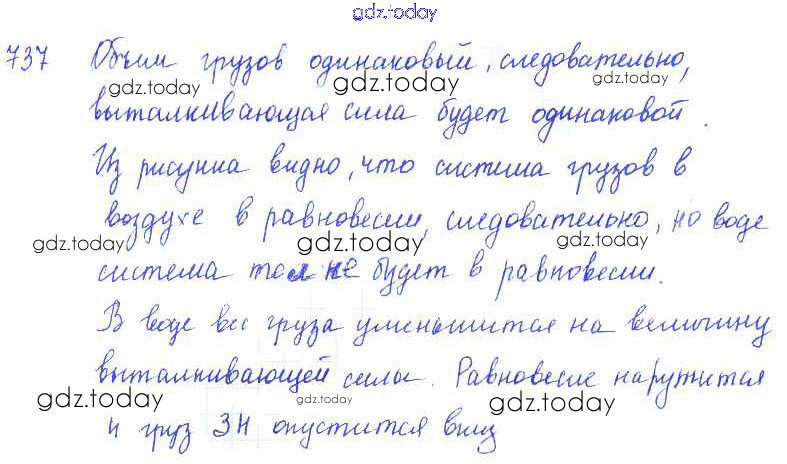 gdz.today
737 Объем грузов одинаковый, следовательно,
gdz.today gdz.today gdz.today
выталкивающая сила будет одинаковой.
Из рисунка видно, что система грузов в
воздухе в равновесии, следовательно, но воде
gdz.today gdz.today gdz.today
система тоже будет в равновесии.
В воде вес груза уменьшится на величину
выталкивающей силы. Равновесие нарушится
gdz.today gdz.today gdz.today
и груз 3Н опустится вниз